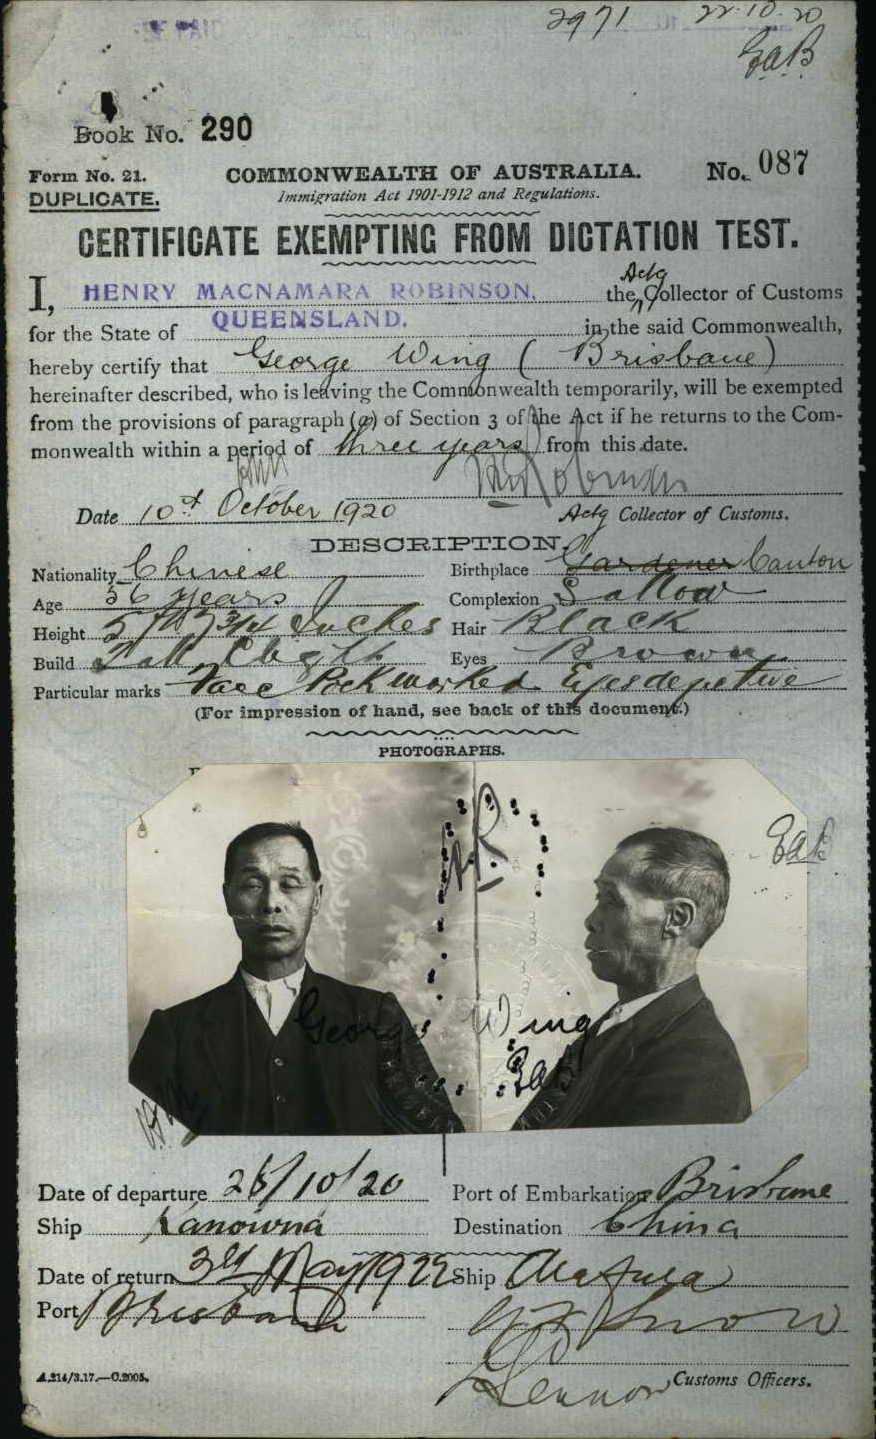 2971 22.10.20
GaB
Book No. 290
Form No. 21. COMMONWEALTH OF AUSTRALIA. No. 087
DUPLICATE. Immigration Act 1901-1912 and Regulations.
CERTIFICATE EXEMPTING FROM DICTATION TEST.
I, HENRY MACNAMARA ROBINSON, the Actg Collector of Customs
for the State of QUEENSLAND. in the said Commonwealth,
hereby certify that George Wing (Brisbane)
hereinafter described, who is leaving the Commonwealth temporarily, will be exempted
from the provisions of paragraph (a) of Section 3 of the Act if he returns to the Com-
monwealth within a period of three years from this date.
Date 10th October 1920
Actg Collector of Customs.
DESCRIPTION.
Nationality Chinese Birthplace Gardener Canton
Age 56 years Complexion Sallow
Height 5 ft 7 3/4 Inches Hair Black
Build Eyes Brown
Particular marks Face Pockmarked Eyes
(For impression of hand, see back of this document.)
PHOTOGRAPHS.
GaB
George Wing
GaB
Date of departure 26/10/20 Port of Embarkation Brisbane
Ship Kanowna Destination China
Date of return 3rd May 1922 Ship
Port Brisbane
Customs Officers.
A.214/3.17.—C.2005.